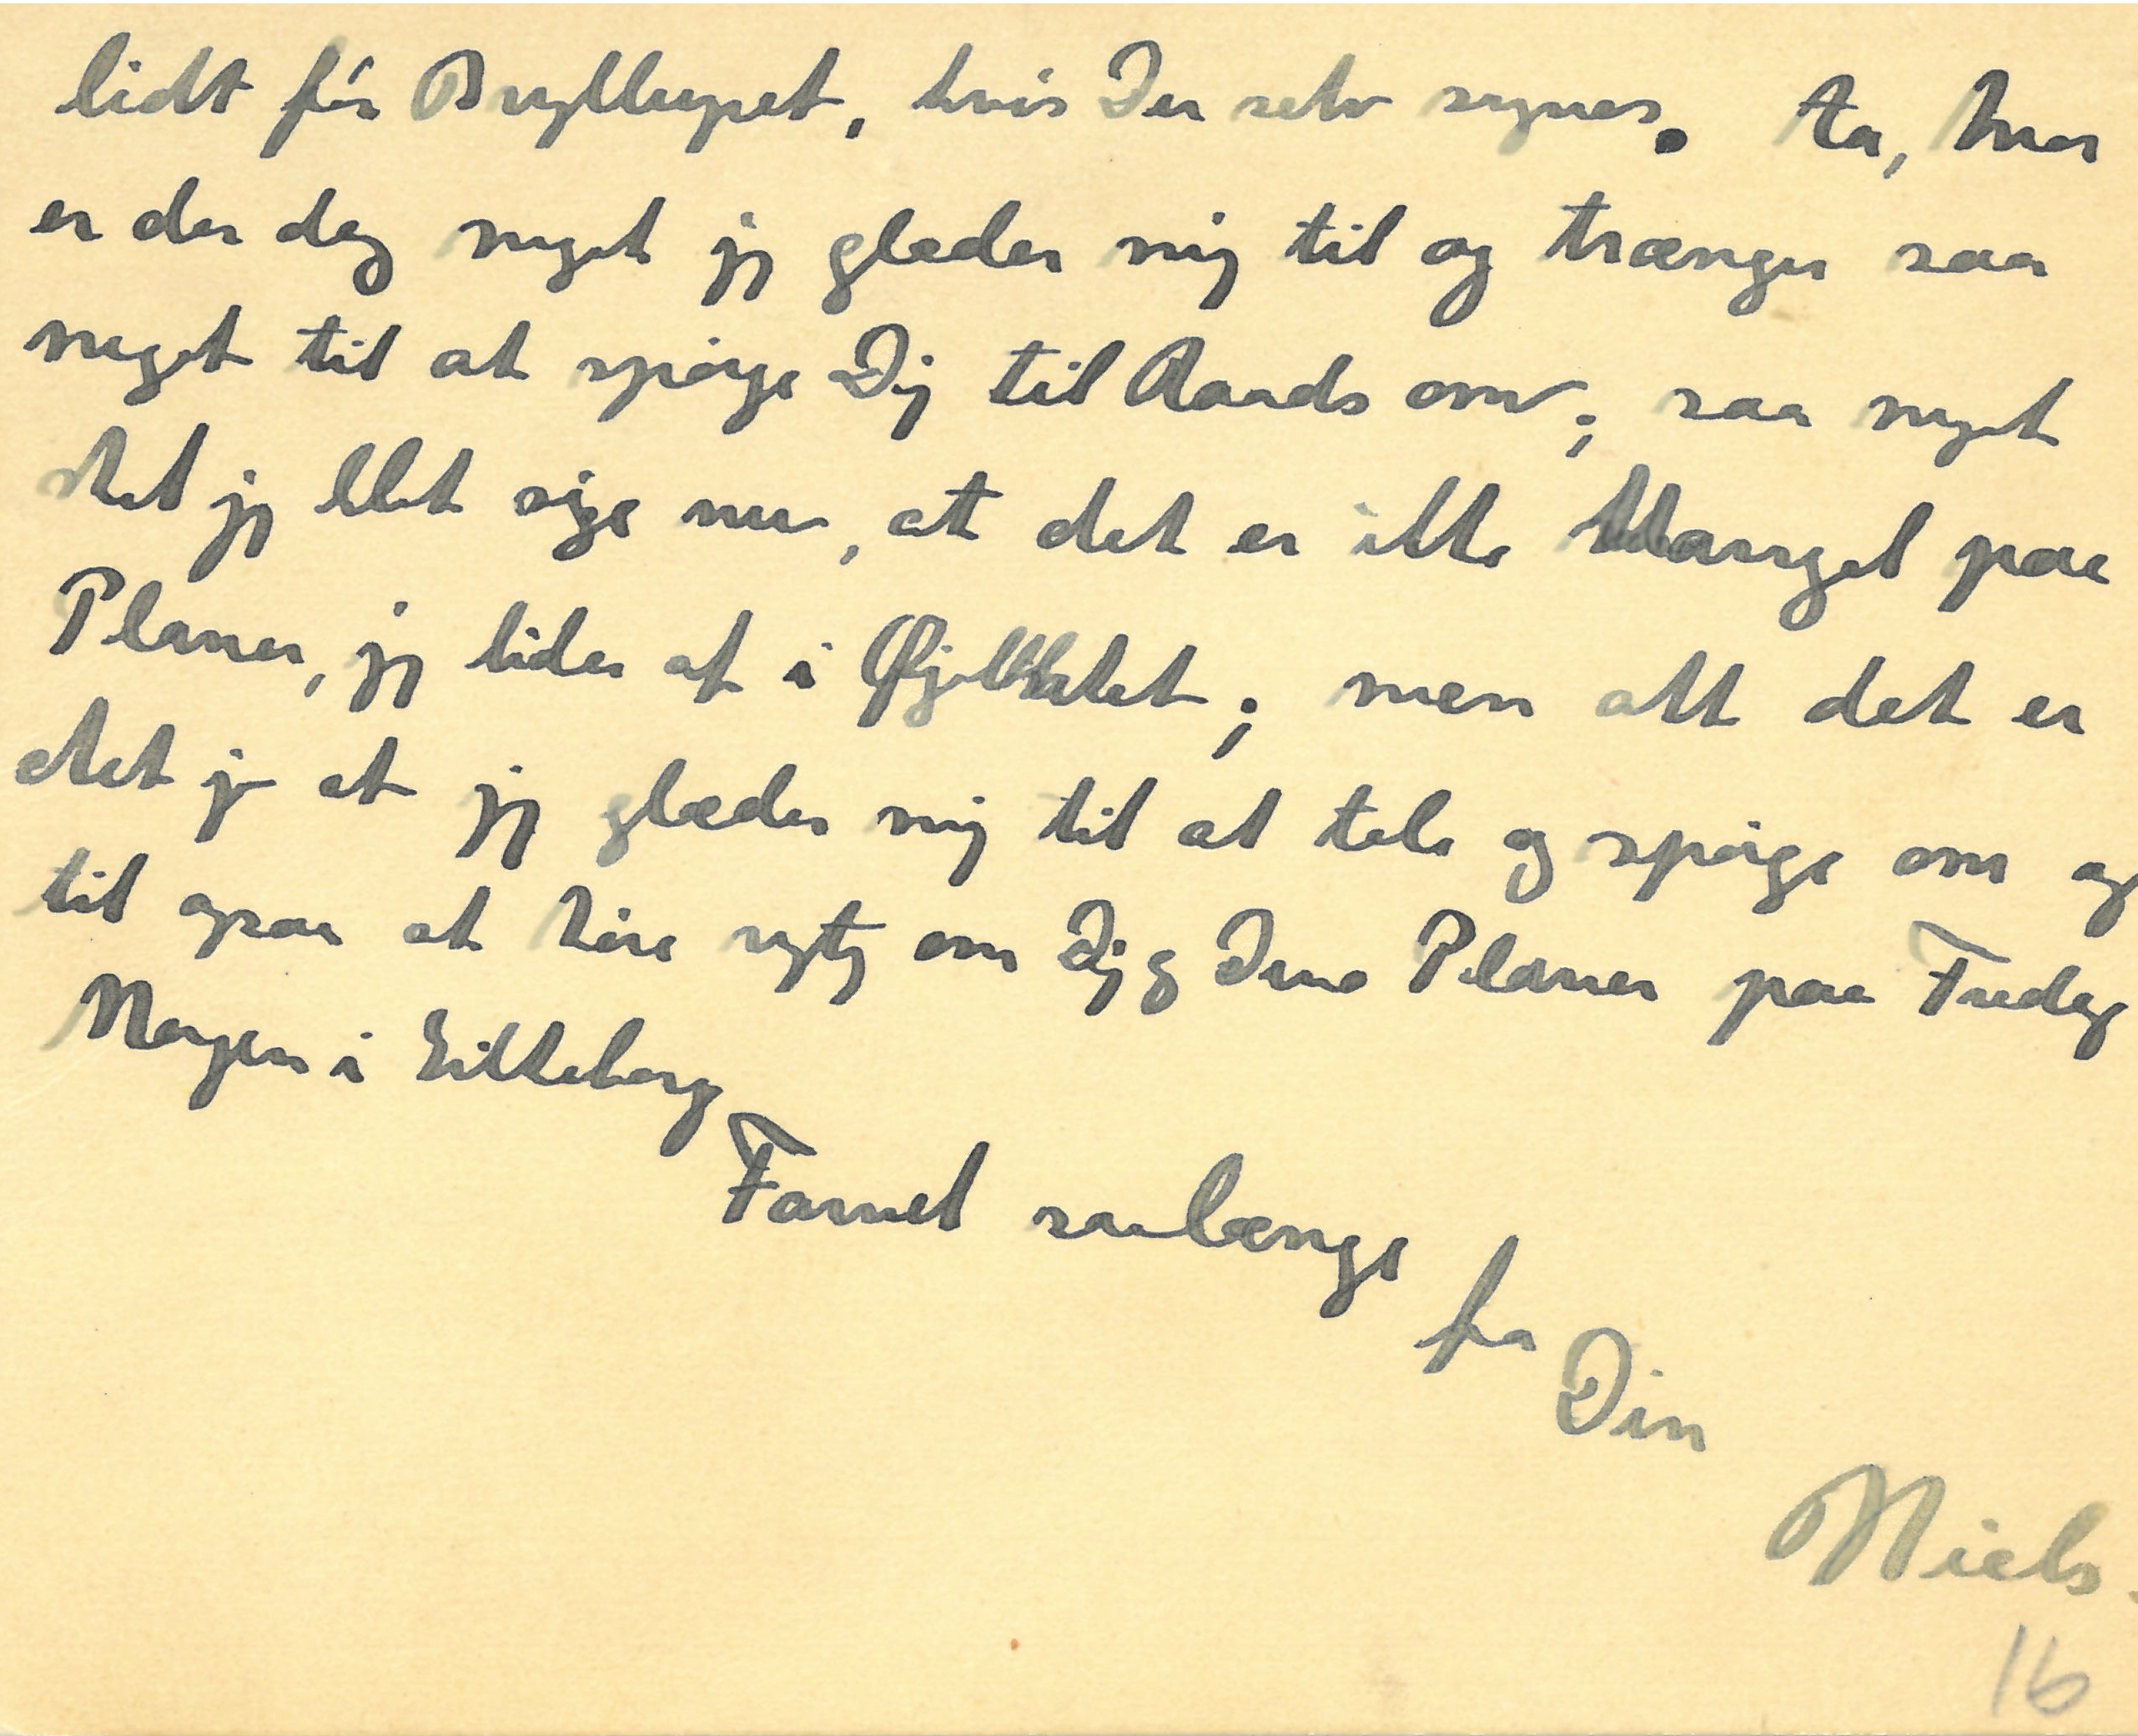 lidt før Bryllupet, hvis Du selv synes. Aa, hvor
er der dog meget jeg glæder mig til og trænger saa
meget til at spørge Dig til Raads om; saa meget
skal jeg blot sige nu, at det er ikke Mangel paa
Planer, jeg lider af i Øjeblikket; men alt det er
det jo at jeg glæder mig til at tale og spørge om og
til ogsaa at høre rigtig om Dig og Dine Planer paa Fredag
Morgen i Silkeborg
Farvel saalænge
fra
Din
Niels.
16